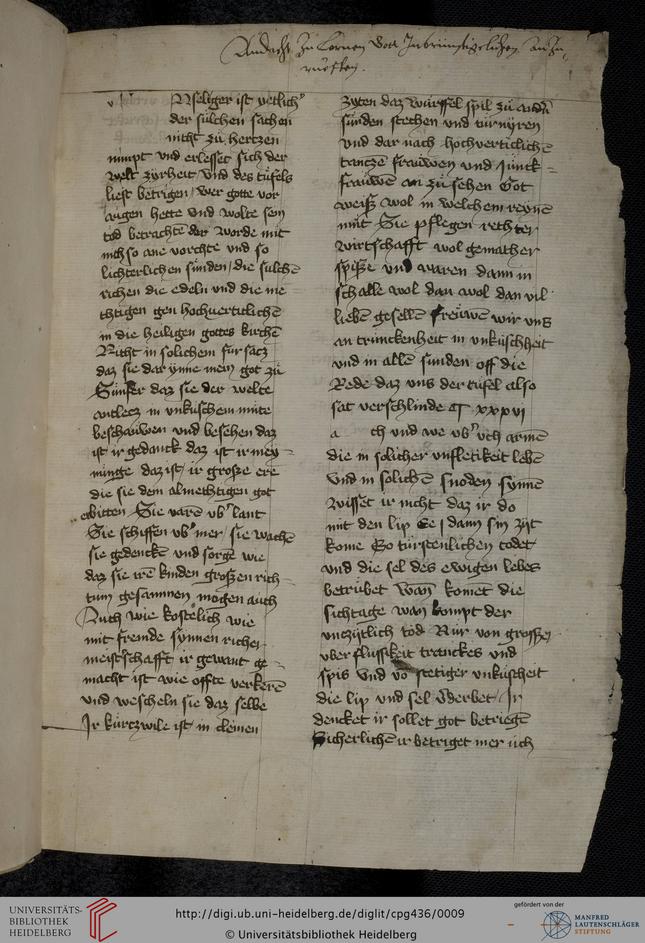 Andacht zu lernen Gott Inbrunstigclichen an zu
rueffen.
v Nseliger ist yetlich
der sulchen sachen
nicht zů hertzen
nimpt vnd erlesset sich der
welt zyrheit vnd des tüfels
list betrigen / wer gotte vor
augen hette vnd wolte sein
tod betrachte der worde mit
nich so ane vorchte vnd so
lichterlichen sünden / die sulchē
richen die edeln vnd die me
chtigen gen hochuerticlichē
in die heiligen gottes kirchē
Nicht in solichem fursacz
daz sie dar ynne mein got zů
Sunder daz sie der welte
antlecz in vnkuschem mute
beschauwen vnd besehen daz
ist ir gedanck daz ist ir mey-
minge daz ist / ir große ere
die sie dem almechtigen got
erbitten Sie varē vbʼ lant
Sie schiffen vbʼ mer / sie wachē
sie gedenckē vnd sorgē wie
daz sie irē kinden großen rich-
tum gesamnen mogen auch
Auch wie kostelich wie
mit fremde synnen richer
meisterschafft ir gewant ge-
macht ist wie offte verkerē
vnd wescheln sie daz selbe
Ir kurczwile ist in cleinen
zyten daz würffel spil zů andn
sünden stechen vnd turnyren
vnd dar nach hochuerticlichē
tancze frauwen vnd junck-
frauwē an zů sehen Got
weiß wol in welchem reynē
mut Sie pflegen rechter
wirtschafft wol gemacher
spiße vnd waren dann in
schalle wol dan wol dan vil
lieben gesellen freuwen wir vns
an trunckenheit in vnkuschheit
vnd in allen sunden off die
Rede daz vns der tüfel also
sat verschlinde ¶ xxxvi
a ch vnd we vbʼ vch armē
die in solicher vnfletikeit lebē
vnd in solichē snoden synnē
Wisset ir nicht daz ir do
mit den lip ee / dann sin zyt
kome So türstenlichen todet
vnd die sel des ewigen lebēs
betrübet Wan komet die
sichtage wan kompt der
vnczytlich tod Nur von grosser
vberflussikeit tranckes vnd
spis vnd vō stetiger vnkuscheit
die lip vnd sel vderbet Ir
dencket ir sollet got betriegē
Sicherlichē ir betriget mer uch
UNIVERSITÄTS-
BIBLIOTHEK
HEIDELBERG
http://digi.ub.uni-heidelberg.de/diglit/cpg436/0009
© Universitätsbibliothek Heidelberg
gefördert von der
MANFRED
LAUTENSCHLÄGER
STIFTUNG